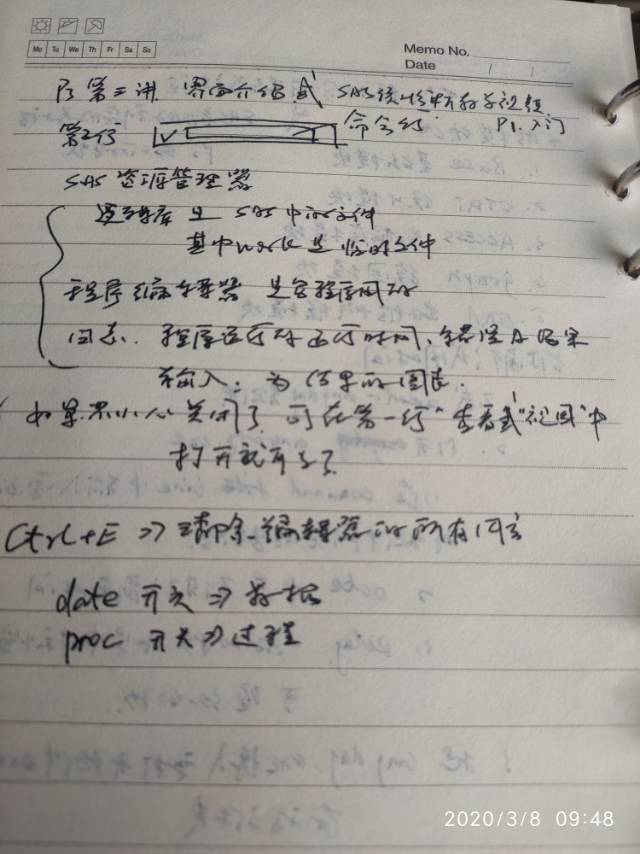 Mo Tu We Th Fr Sa Su
Memo No.
Date / /
P3 第三讲 界面介绍 SAS统计软件教学视频
第2行 命令行 P1.入门
SAS 资源管理器
逻辑库 是 SAS中的文件
其中work是临时文件
程序编辑器 是写程序用的
日志. 程序运行 运行时间、错误
输入: 为结果的
如果不小心关闭了, 可在第一行"查看"或"视图"中
打开就可以了
Ctrl+E => 清除编辑器的所有内容
date 开头 => 数据
proc 开头 => 过程
2020/3/8 09:48